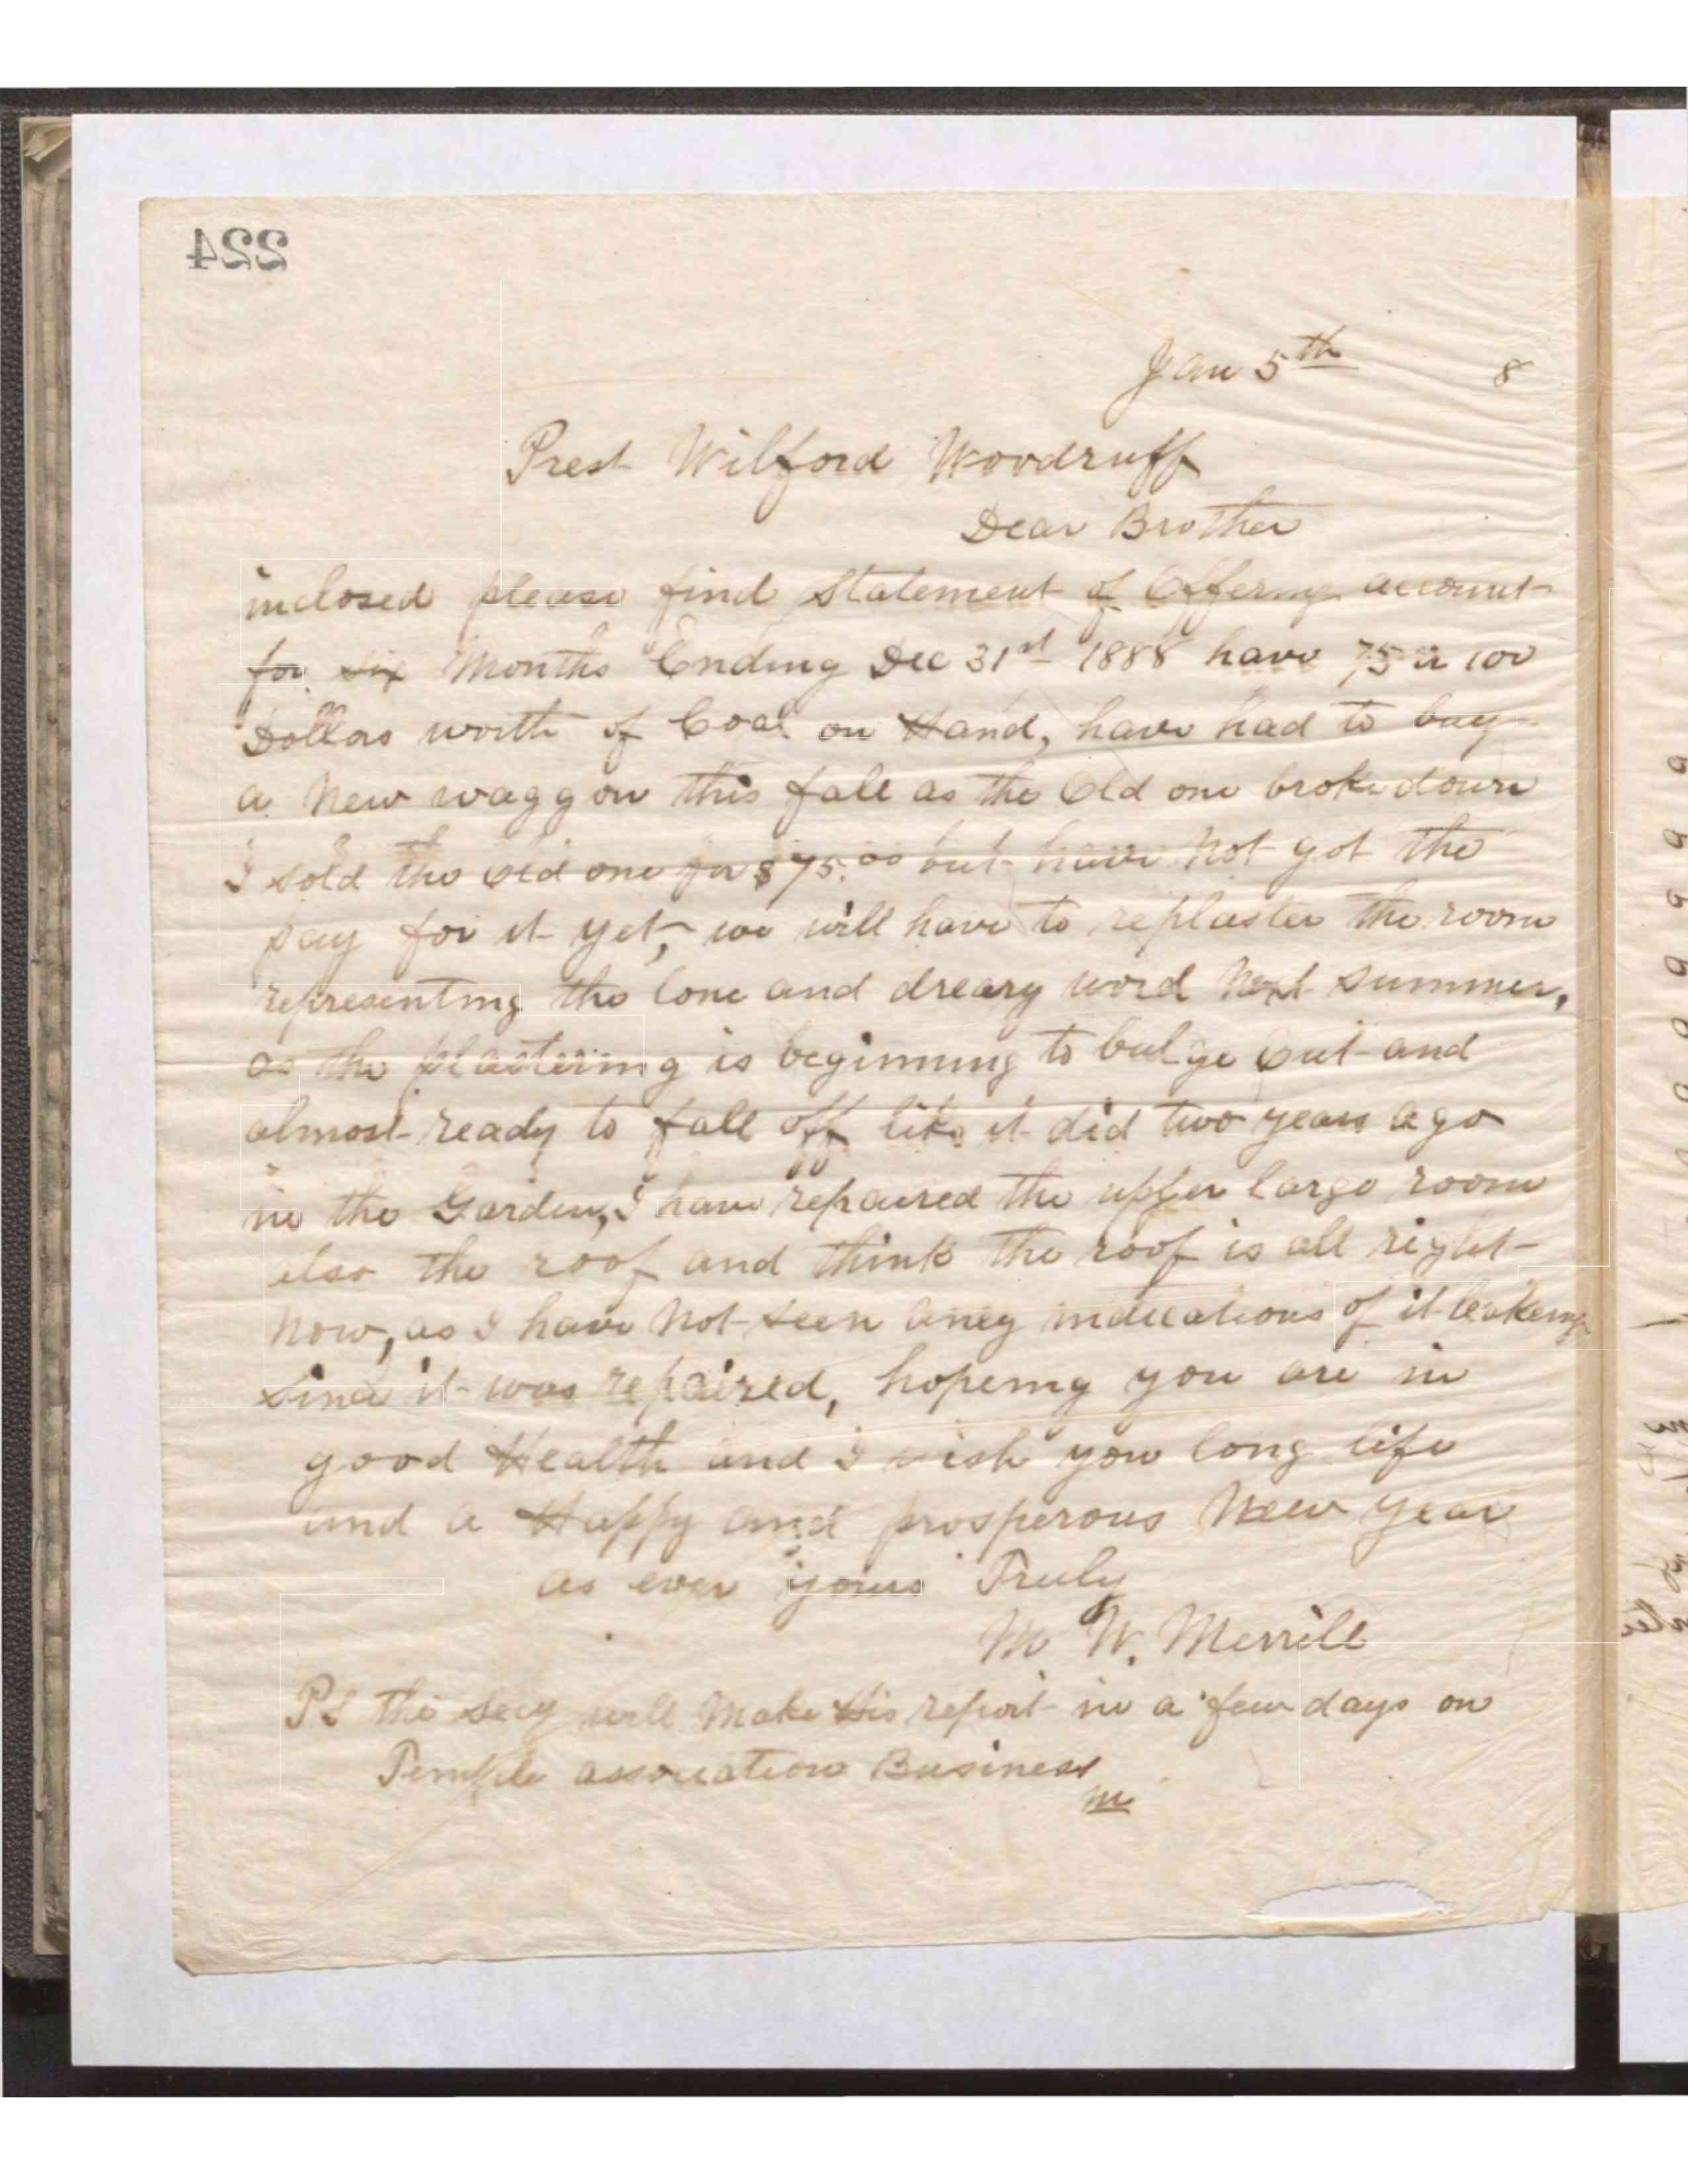 224
Jan 5th 8
Prest Wilford Woodruff
Dear Brother
inclosed please find Statement of Offering account
for six Months Ending Dec 31st 1888 have 75 a 100
Dollars worth of Coal on Hand, have had to buy
a New waggon this fall as the Old one broke down
I sold the old one for $75.00 but have Not got the
pay for it yet, we will have to replaster the room
representing the lone and dreary word Next summer,
as the plastering is beginning to bulge out and
almost ready to fall off like it did two years ago
in the Garden, I have repaired the upper large room
also the roof and think the roof is all right
Now, as I have Not seen aney indications of it leakeing
Since it was repaired, hopeing you are in
good Health and I wish you long life
and a Happy and prosperous New year
as ever yours Truly
M W. Merrill
PS the Secy will Make His report in a few days on
Temple association Business
M